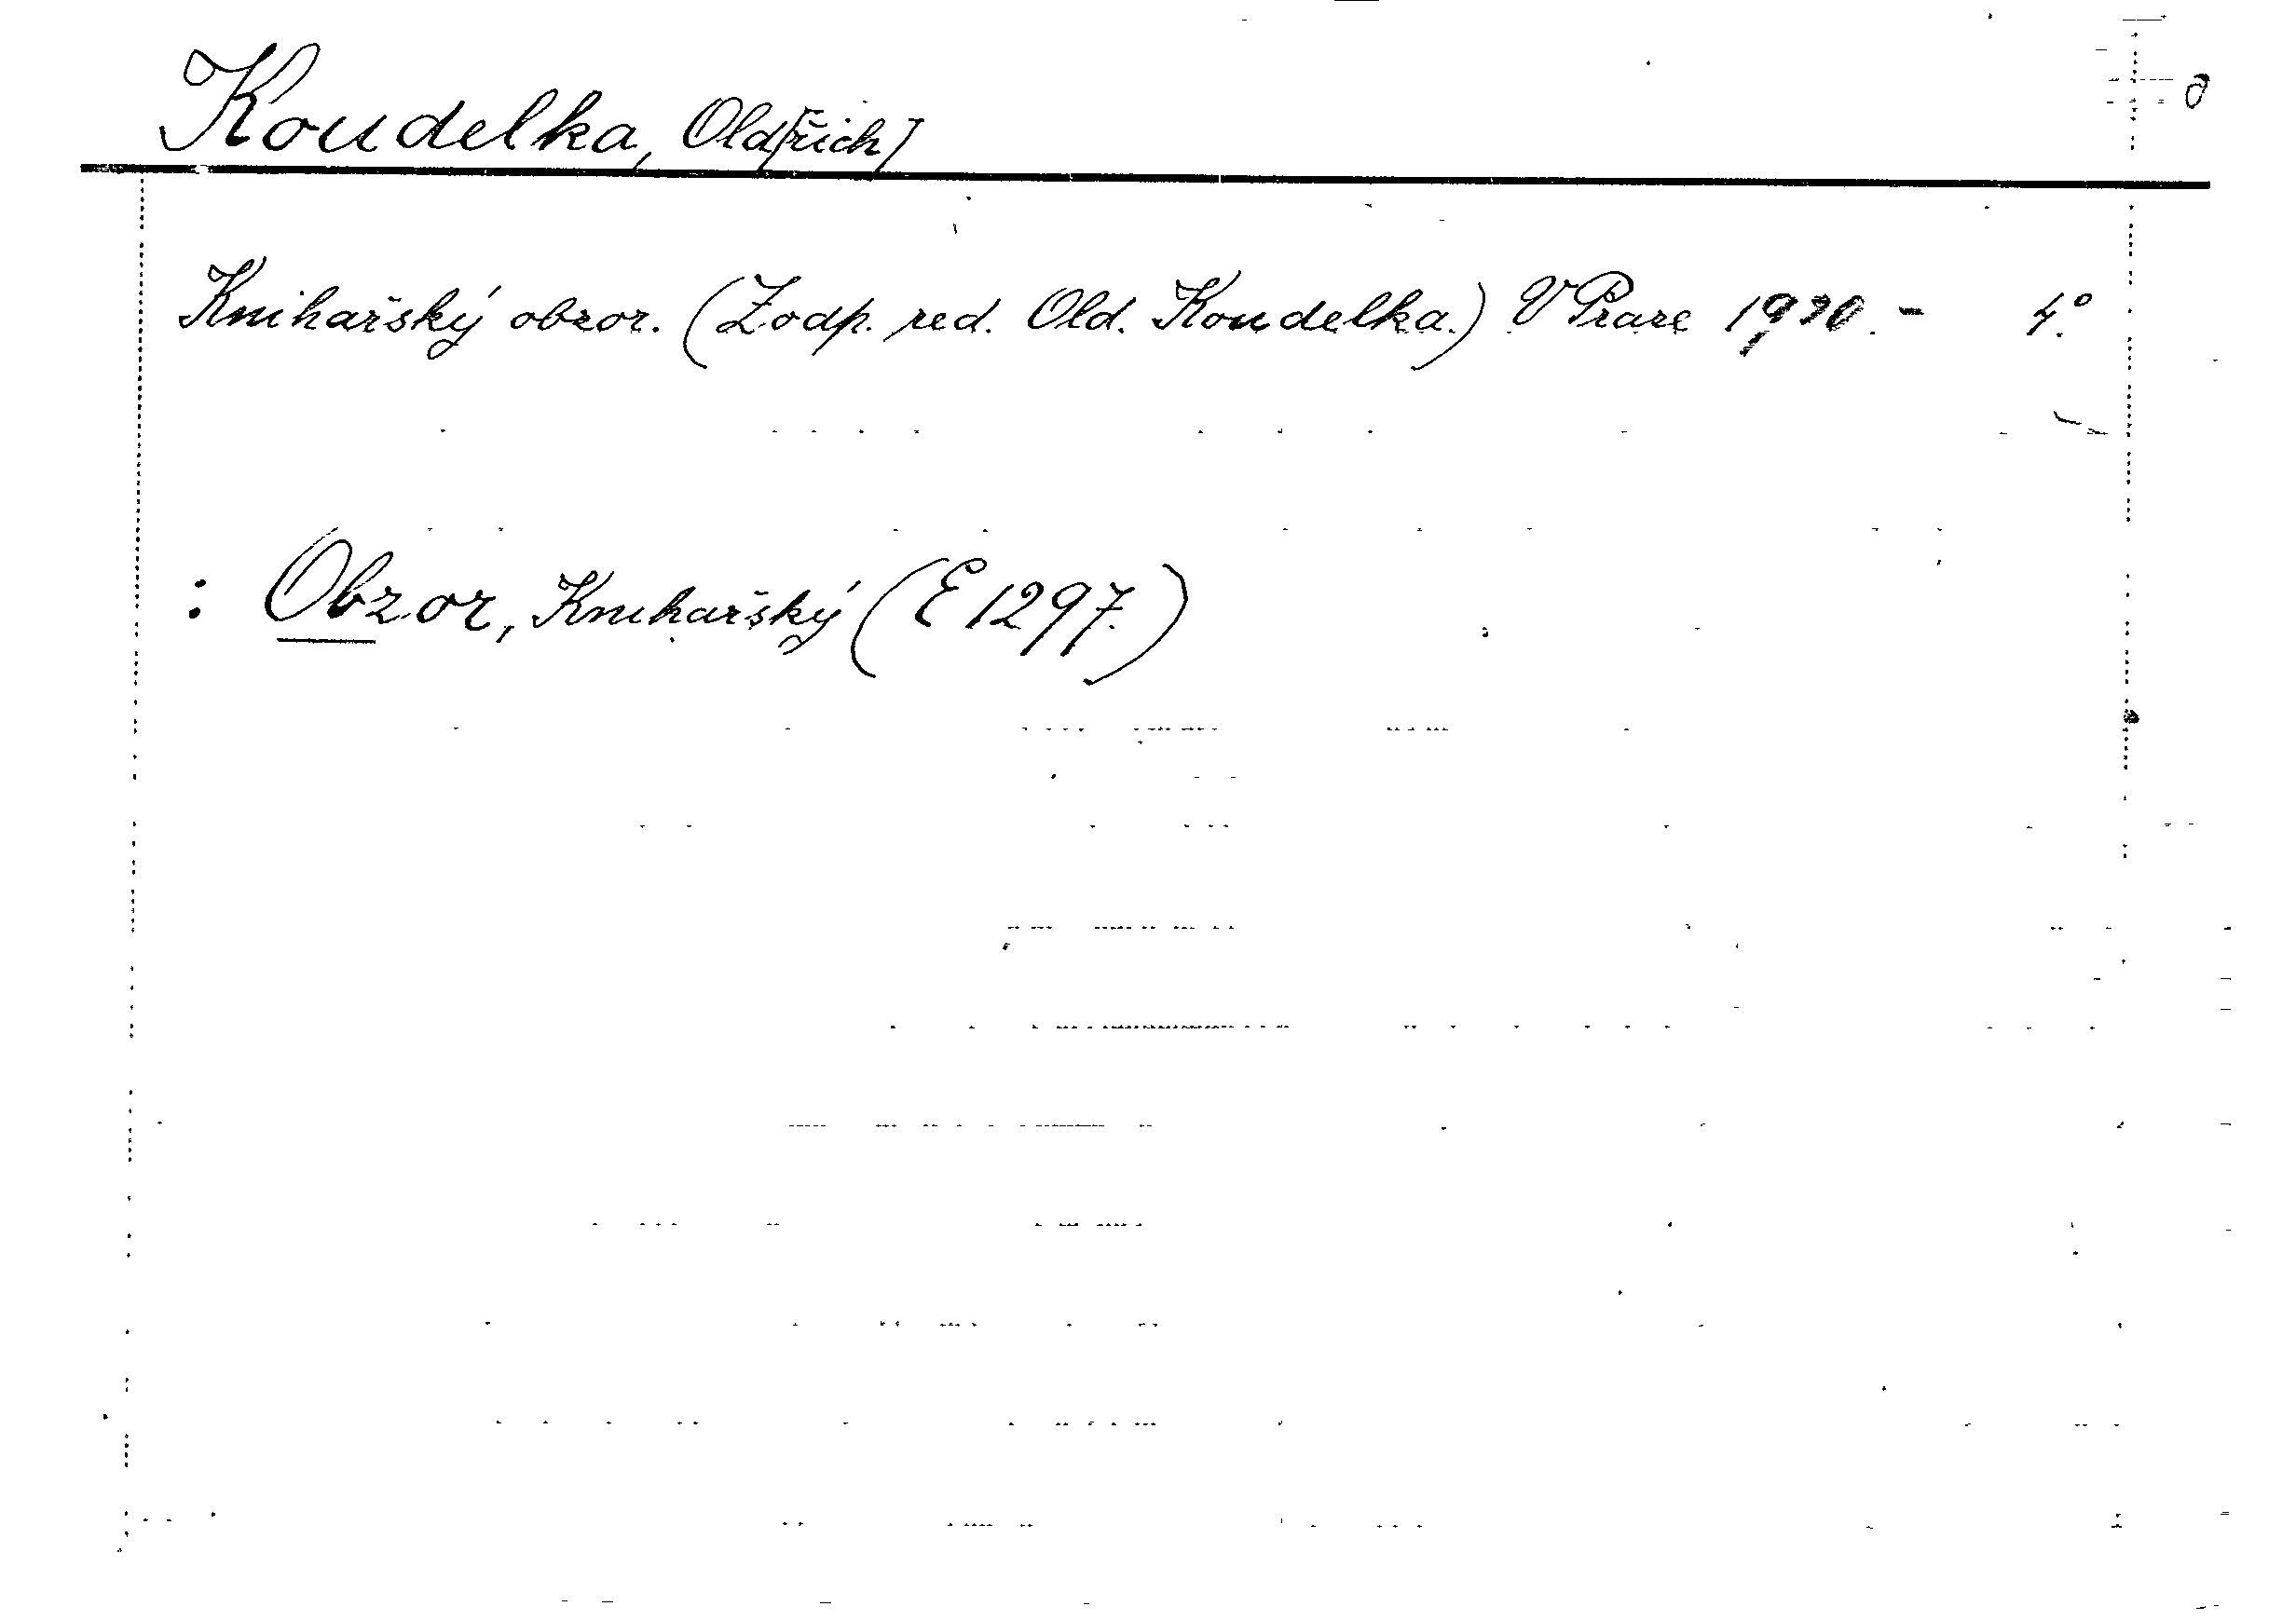 Koudelka, Old[řich]
Knihařský obzor. (Zodp. red. Old. Koudelka.) V Praze 1930.- 4°.
: Obzor, Knihařský (E 1297.)